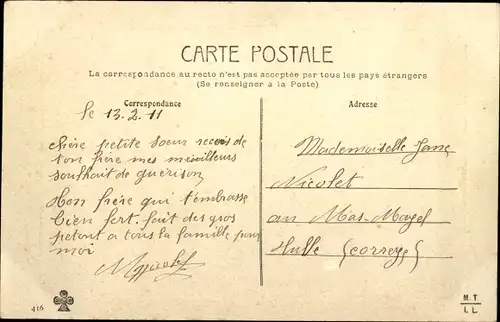 CARTE POSTALE
La correspondance au recto n'est pas acceptée par tous les pays étrangers
(Se renseigner à la Poste)
Correspondance
Adresse
le 13.2.11
chère petite soeur recois de
ton frère mes meilleurs
souhait de guerison
Ton frère qui t'embrasse
bien fort. fait des gros
petout a tous la famille pour
moi
Nicolet
Mademoiselle Jane
Nicolet
au Mas-Magel
Tulle (correze)
416
M T
I L